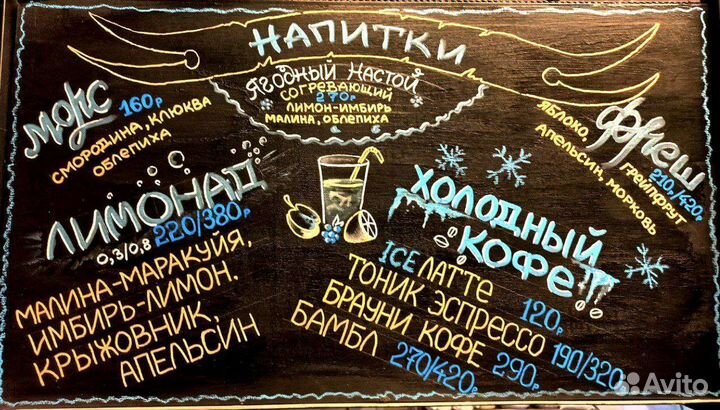 НАПИТКИ
ЯГОДНЫЙ НАСТОЙ
СОГРЕВАЮЩИЙ
270Р
ЛИМОН-ИМБИРЬ
МАЛИНА, ОБЛЕПИХА
МОРС 160Р
СМОРОДИНА, КЛЮКВА
ОБЛЕПИХА
ФРЕШ
210/420Р
ЯБЛОКО, ГРЕЙПФРУТ
АПЕЛЬСИН, МОРКОВЬ
ЛИМОНАД
0,3/0,8 220/380Р
МАЛИНА-МАРАКУЙЯ,
ИМБИРЬ-ЛИМОН,
КРЫЖОВНИК,
АПЕЛЬСИН
ХОЛОДНЫЙ
КОФЕ
ICE ЛАТТЕ 120Р
ТОНИК ЭСПРЕССО 190/320Р
БРАУНИ КОФЕ 290Р
БАМБЛ 270/420Р
Avito